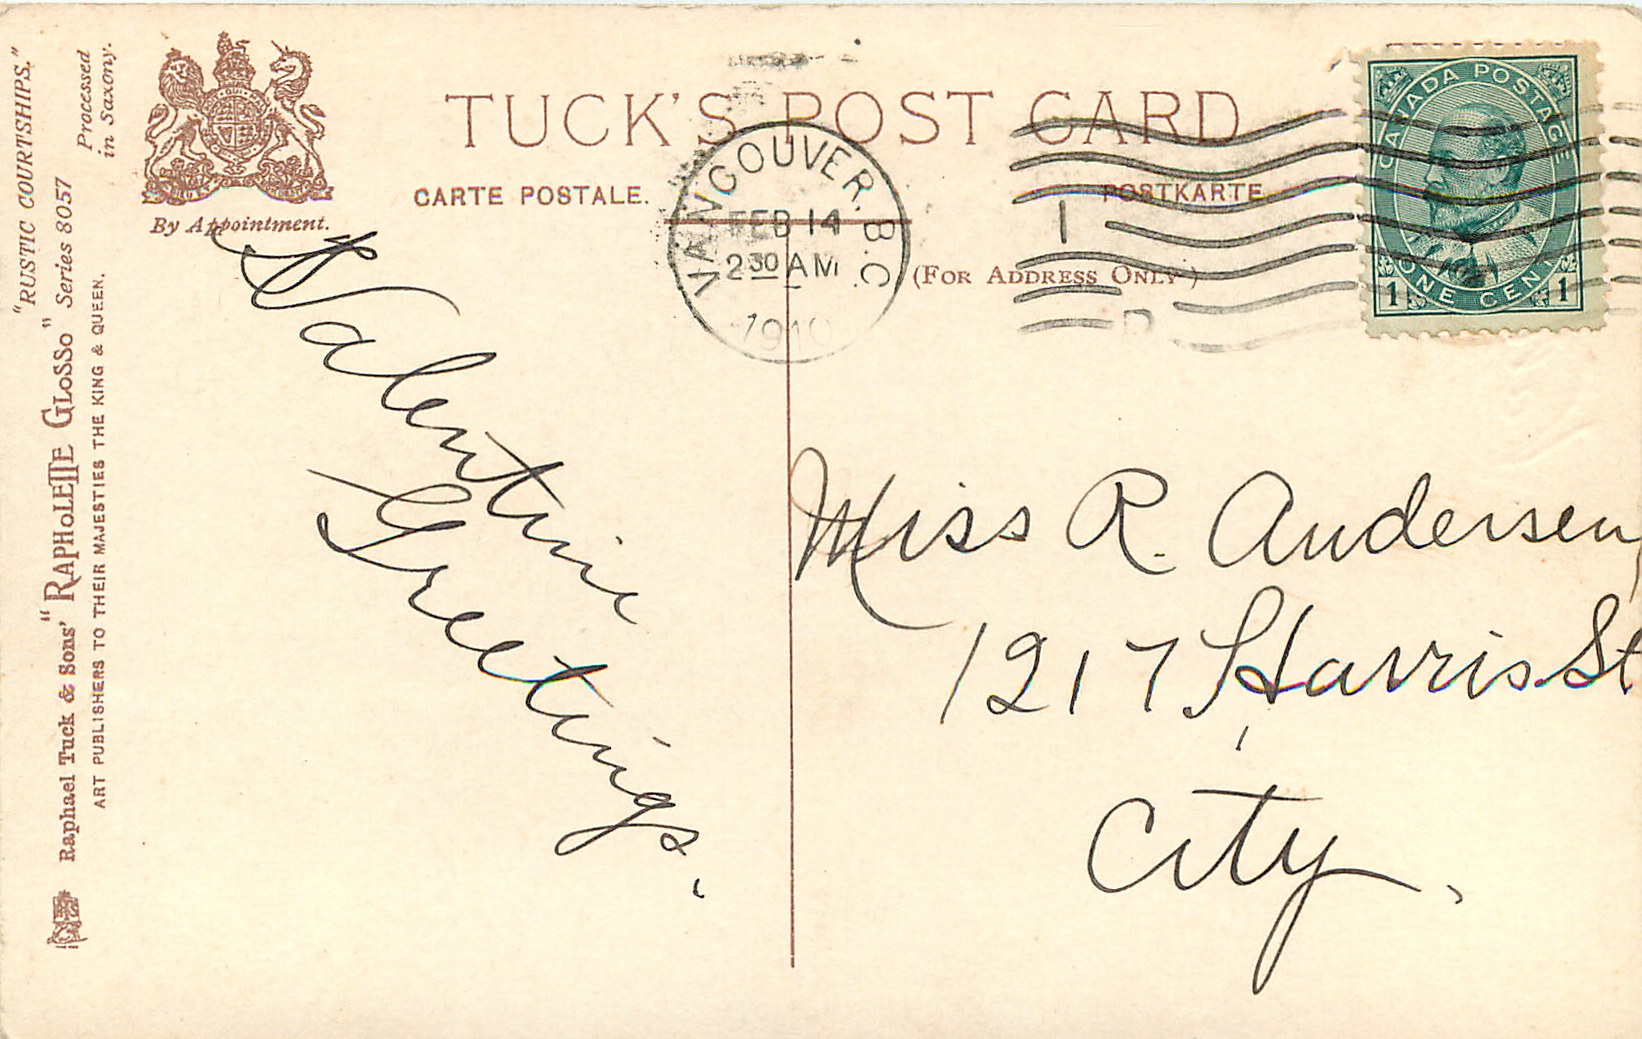 "RUSTIC COURTSHIPS."
Processed
in Saxony.
Raphael Tuck & Sons' "RAPHOLETTE GLOSSO" Series 8057
ART PUBLISHERS TO THEIR MAJESTIES THE KING & QUEEN.
By Appointment.
TUCK'S POST CARD
CARTE POSTALE.
POSTKARTE
(FOR ADDRESS ONLY)
VANCOUVER. B.C.
FEB 14
2 30 AM
1910
CANADA POSTAGE
ONE CENT
1 1
Valentine
Greetings.
Miss R. Andersen,
1217 Harris St
City,